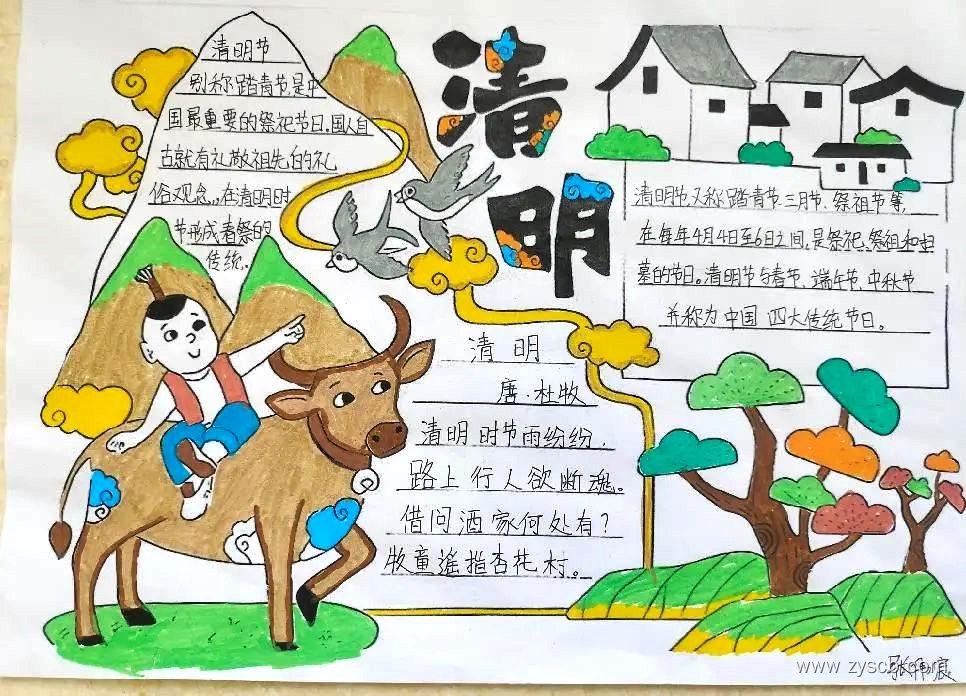 清明
清明节
别称踏青节,是中
国最重要的祭祀节日,国人自
古就有礼敬祖先,的礼
俗观念,,,在清明时
节形成春祭的
传统。
清明节又称踏青节、三月节、祭祖节等,
在每年4月4日至6日之间,是祭祀、祭祖和扫
墓的节日。清明节与春节、端午节、中秋节
并称为中国四大传统节日。
清明
唐·杜牧
清明时节雨纷纷,
路上行人欲断魂。
借问酒家何处有?
牧童遥指杏花村。